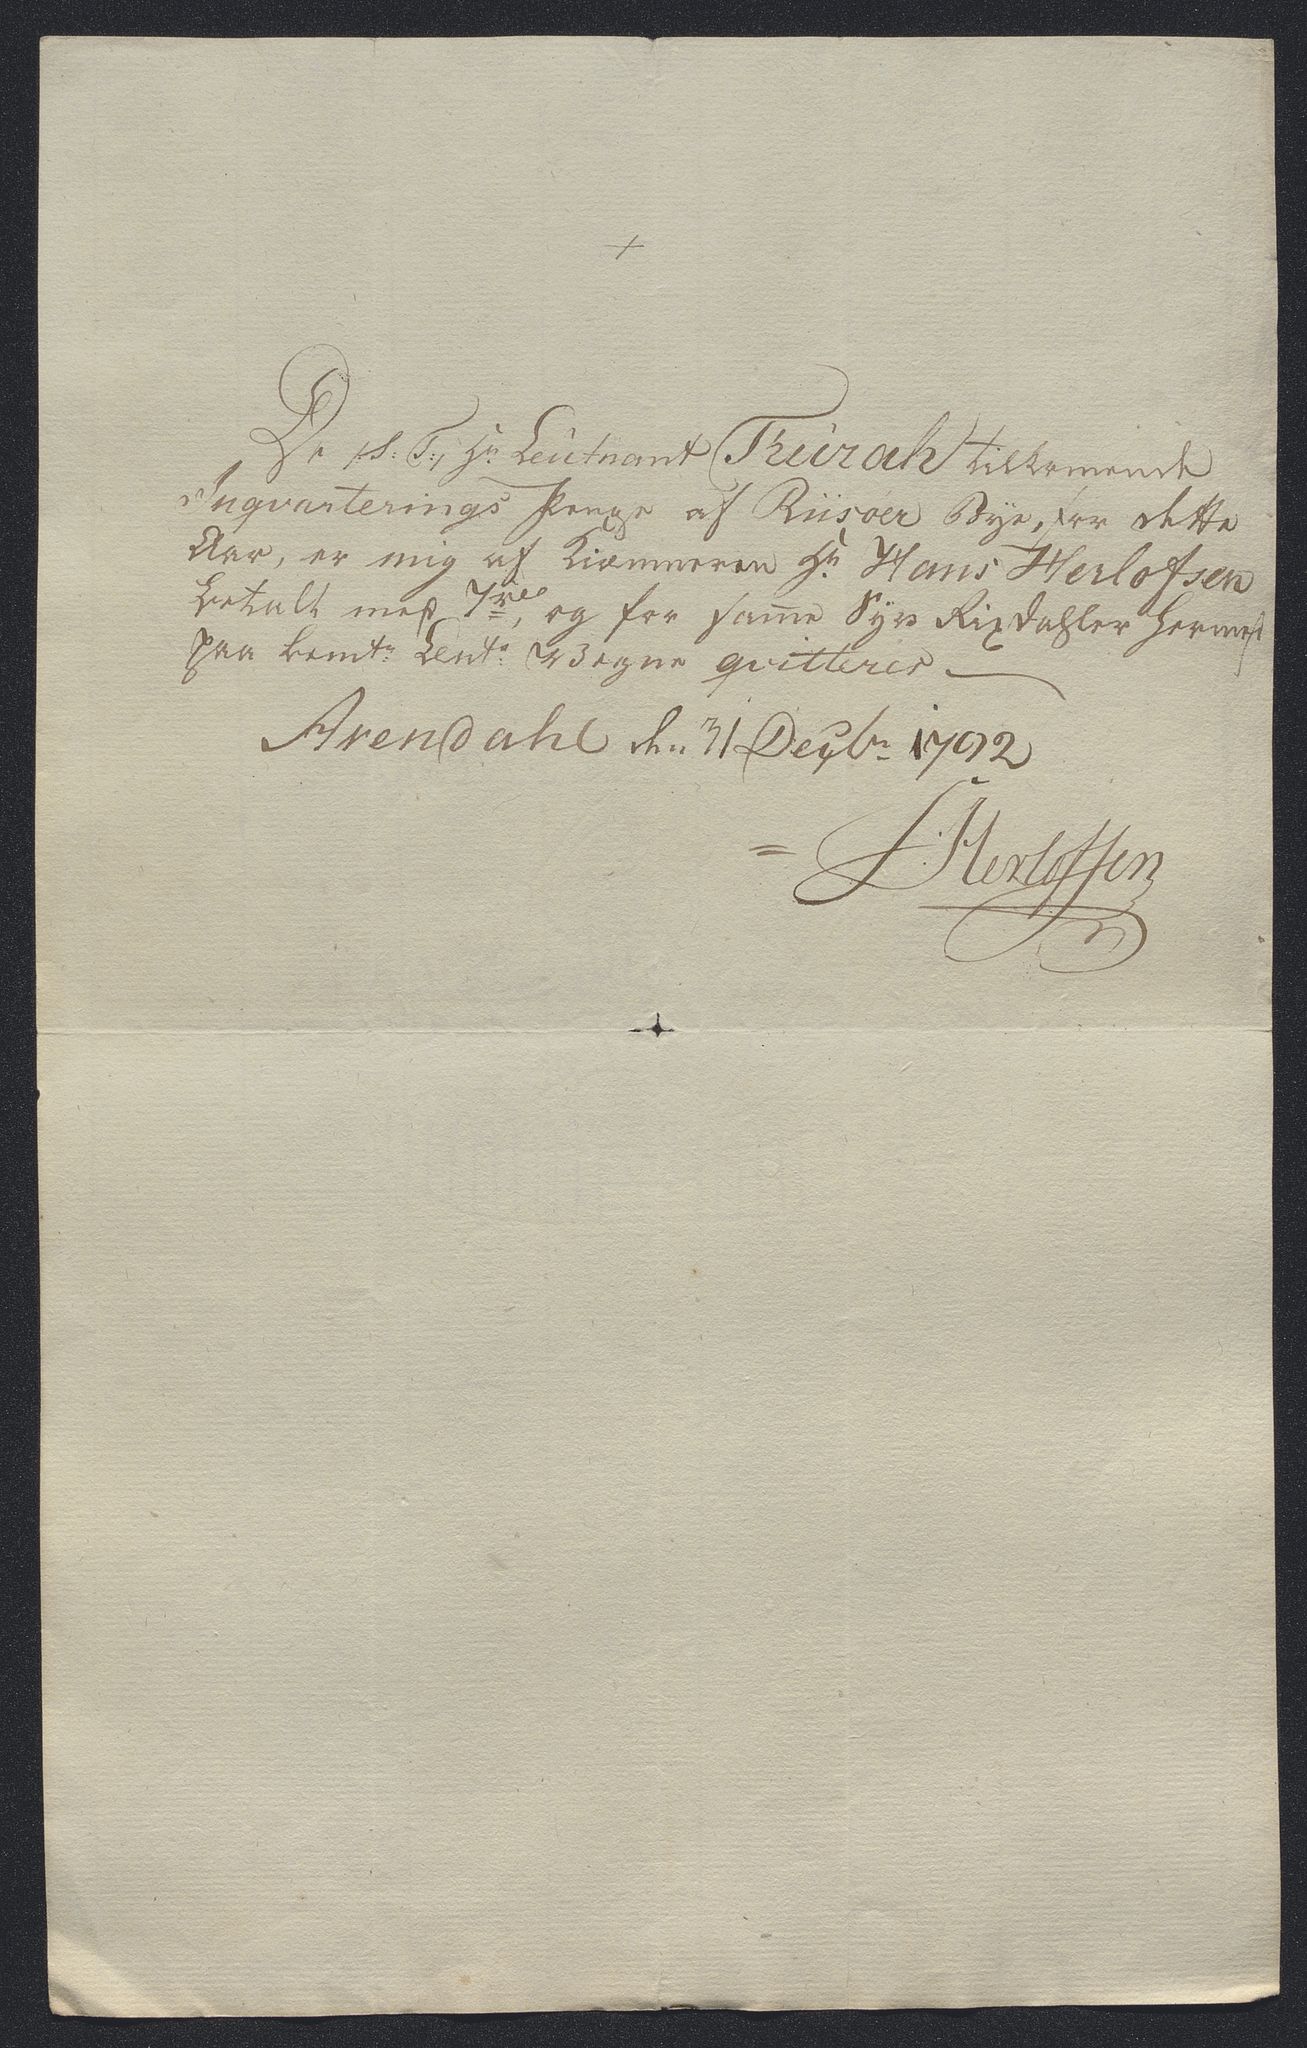 De /:S: T:/ Hr Leutnant Thurah tilkomende
Inqvarterings Penge af Riisøer Bye, for dette
Aar, er mig af Kiæmneren Hr Hans Herlofsen
betalt med 7 rd, og for same Syv Rixdahler hermed
paa bemte Leuts Vegne qvitteres
Arendahl den 31 Decbr 1792
= Herlofsen